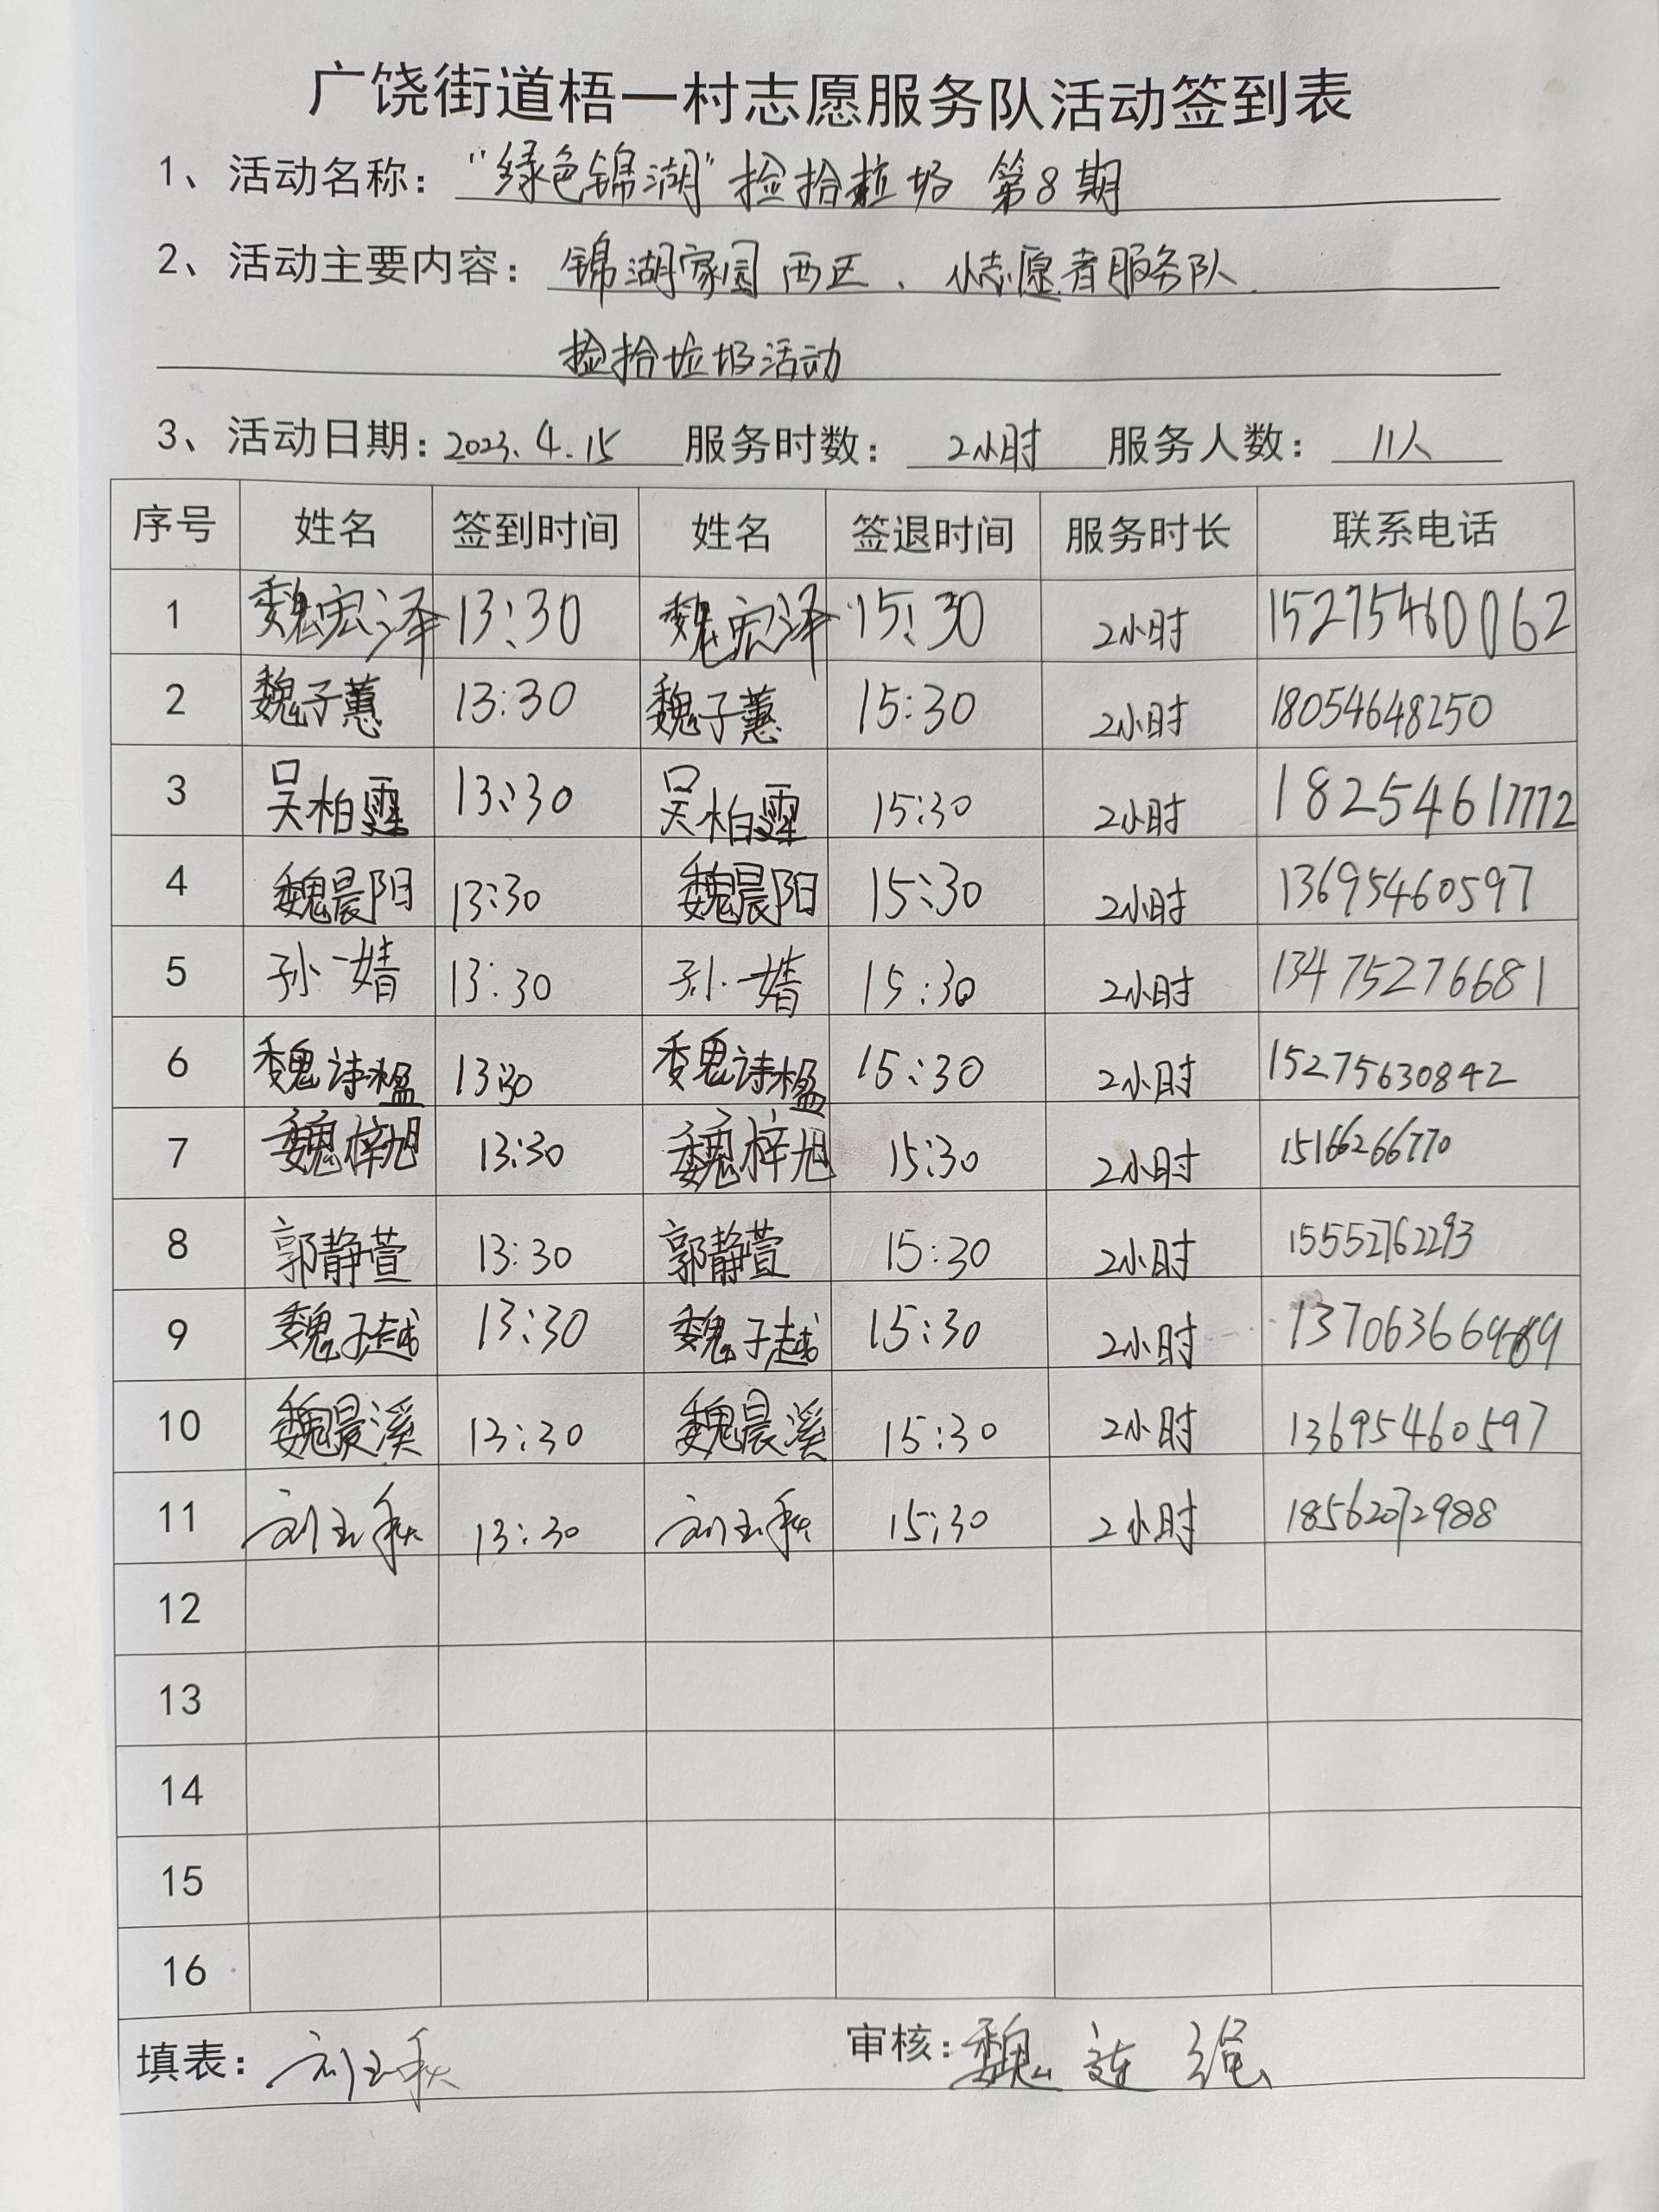 广饶街道梧一村志愿服务队活动签到表
1、活动名称：“绿色锦湖”捡拾垃圾 第8期
2、活动主要内容：锦湖家园西区、小志愿者服务队
捡拾垃圾活动
3、活动日期：2023.4.15 服务时数：2小时 服务人数：11人
序号 姓名 签到时间 姓名 签退时间 服务时长 联系电话
1 魏宏泽 13:30 魏宏泽 15:30 2小时 15275460062
2 魏子蕙 13:30 魏子蕙 15:30 2小时 18054648250
3 吴柏霆 13:30 吴柏霆 15:30 2小时 18254617772
4 魏晨阳 13:30 魏晨阳 15:30 2小时 13695460597
5 孙一婧 13:30 孙一婧 15:30 2小时 13475276681
6 魏诗楹 13:30 魏诗楹 15:30 2小时 15275630842
7 魏梓旭 13:30 魏梓旭 15:30 2小时 15166266770
8 郭静萱 13:30 郭静萱 15:30 2小时 15552762293
9 魏子越 13:30 魏子越 15:30 2小时
10 魏晨溪 13:30 魏晨溪 15:30 2小时 13695460597
11 刘玉秋 13:30 刘玉秋 15:30 2小时 18562072988
12
13
14
15
16
填表：刘玉秋 审核：魏连绳